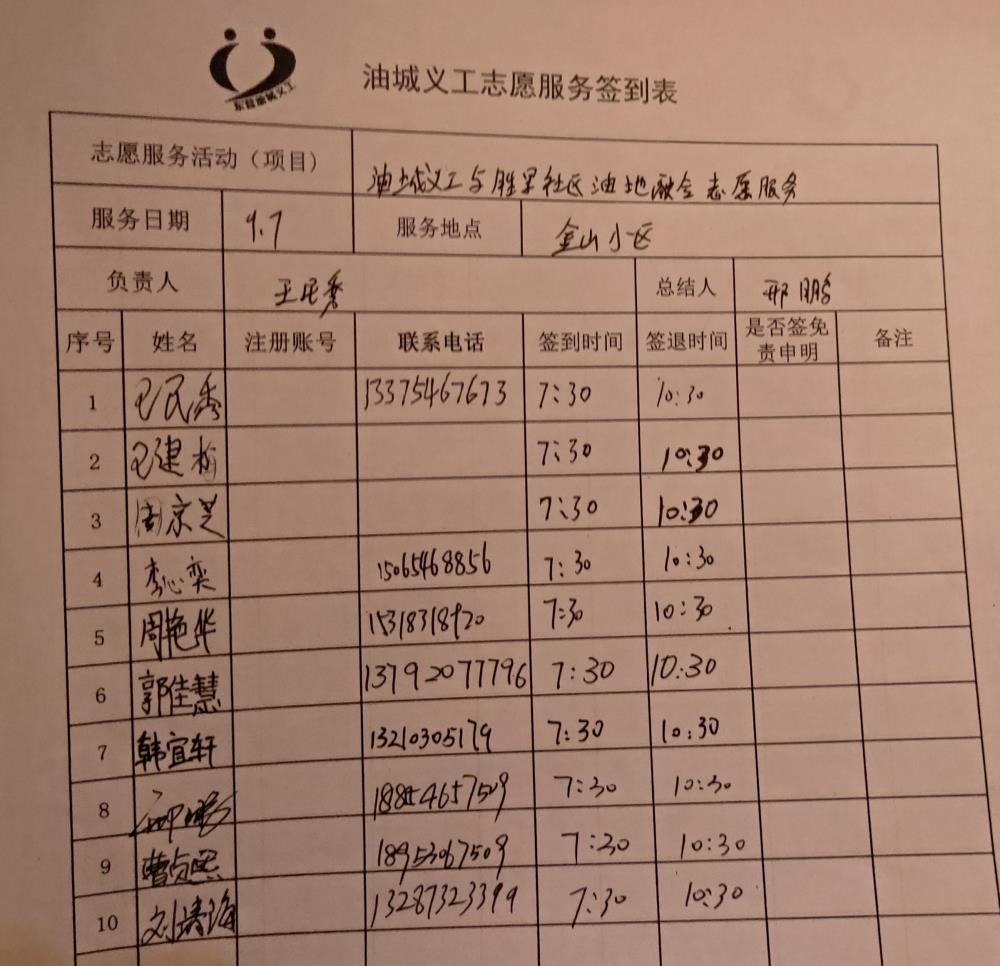 东营油城义工
油城义工志愿服务签到表
志愿服务活动（项目） 油城义工与胜星社区油地融合志愿服务
服务日期 9.7 服务地点 金山小区
负责人 王民秀 总结人 邢鹏
序号 姓名 注册账号 联系电话 签到时间 签退时间 是否签免责申明 备注
1 王民秀 13375467673 7:30 10:30
2 王建 7:30 10:30
3 周京芝 7:30 10:30
4 李心奕 15065468856 7:30 10:30
5 周艳华 15318318920 7:30 10:30
6 郭佳慧 13792077796 7:30 10:30
7 韩宜轩 13210305179 7:30 10:30
8 邢鹏 18854657509 7:30 10:30
9 曹贞 18953067509 7:30 10:30
10 刘靖海 13287323399 7:30 10:30